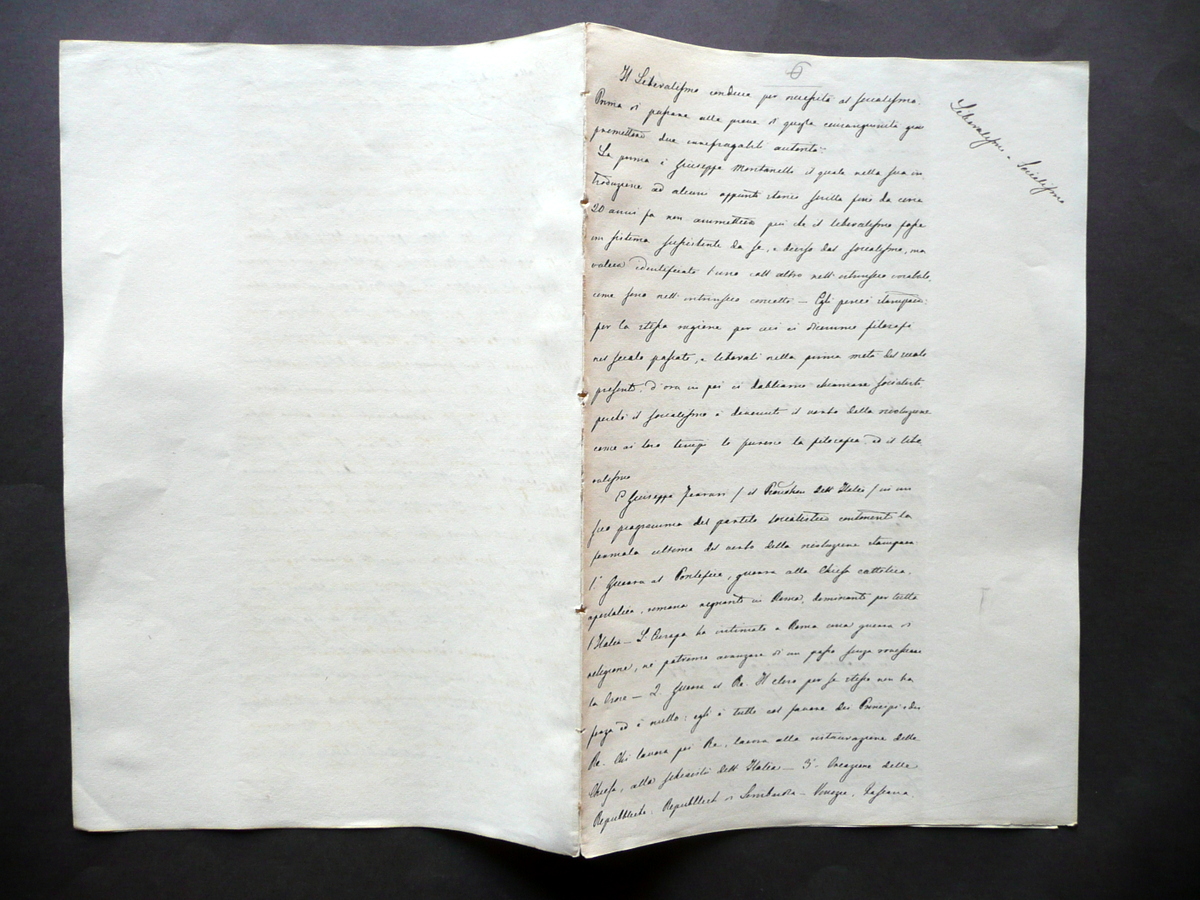 6
Liberalismo e Socialismo
Il Liberalismo conduce per necessità al socialismo.
Prima di passare alla prova di questa
promettere due irrefragabili autorità:
La prima è Giuseppe Montanelli il quale nella sua in
troduzione ad alcuni appunti storici scritta fino da circa
20 anni fa non ammetteva più che il liberalismo fosse
un sistema sussistente da se, e diverso dal socialismo, ma
voleva identificato l'uno coll'altro nell'estrinseco vocabolo,
come sono nell'intrinseco concetto — Egli perciò stampava:
per la stessa ragione per cui ci dicemmo filosofi
nel secolo passato, e liberali nella prima metà del secolo
presente, d'ora in poi ci dobbiamo chiamare socialisti
perché il socialismo è divenuto il verbo della rivoluzione
come ai loro tempi lo furono la filosofia, ed il libe
ralismo
Giuseppe Ferrari / il Proudhon dell'Italia / in un
suo programma del partito socialistico contenente la
formula ultima del verbo della rivoluzione stampava
1.° Guerra al Pontefice, guerra alla Chiesa cattolica,
apostolica, romana regnante in Roma, dominante per tutta
l'Italia — L'Europa ha intimato a Roma una guerra di
religione, né potremo avanzare di un passo senza rovesciare
la Croce — 2. Guerra ai Re. Il clero per se stesso non ha
forza ed è nullo: egli è tutto col favore dei Principi e dei
Re. Chi lavora pei Re, lavora alla restaurazione della
Chiesa, alla schiavitù dell'Italia — 3.° Creazione delle
Repubbliche, Repubblica di Lombardia — Venezia, Toscana,